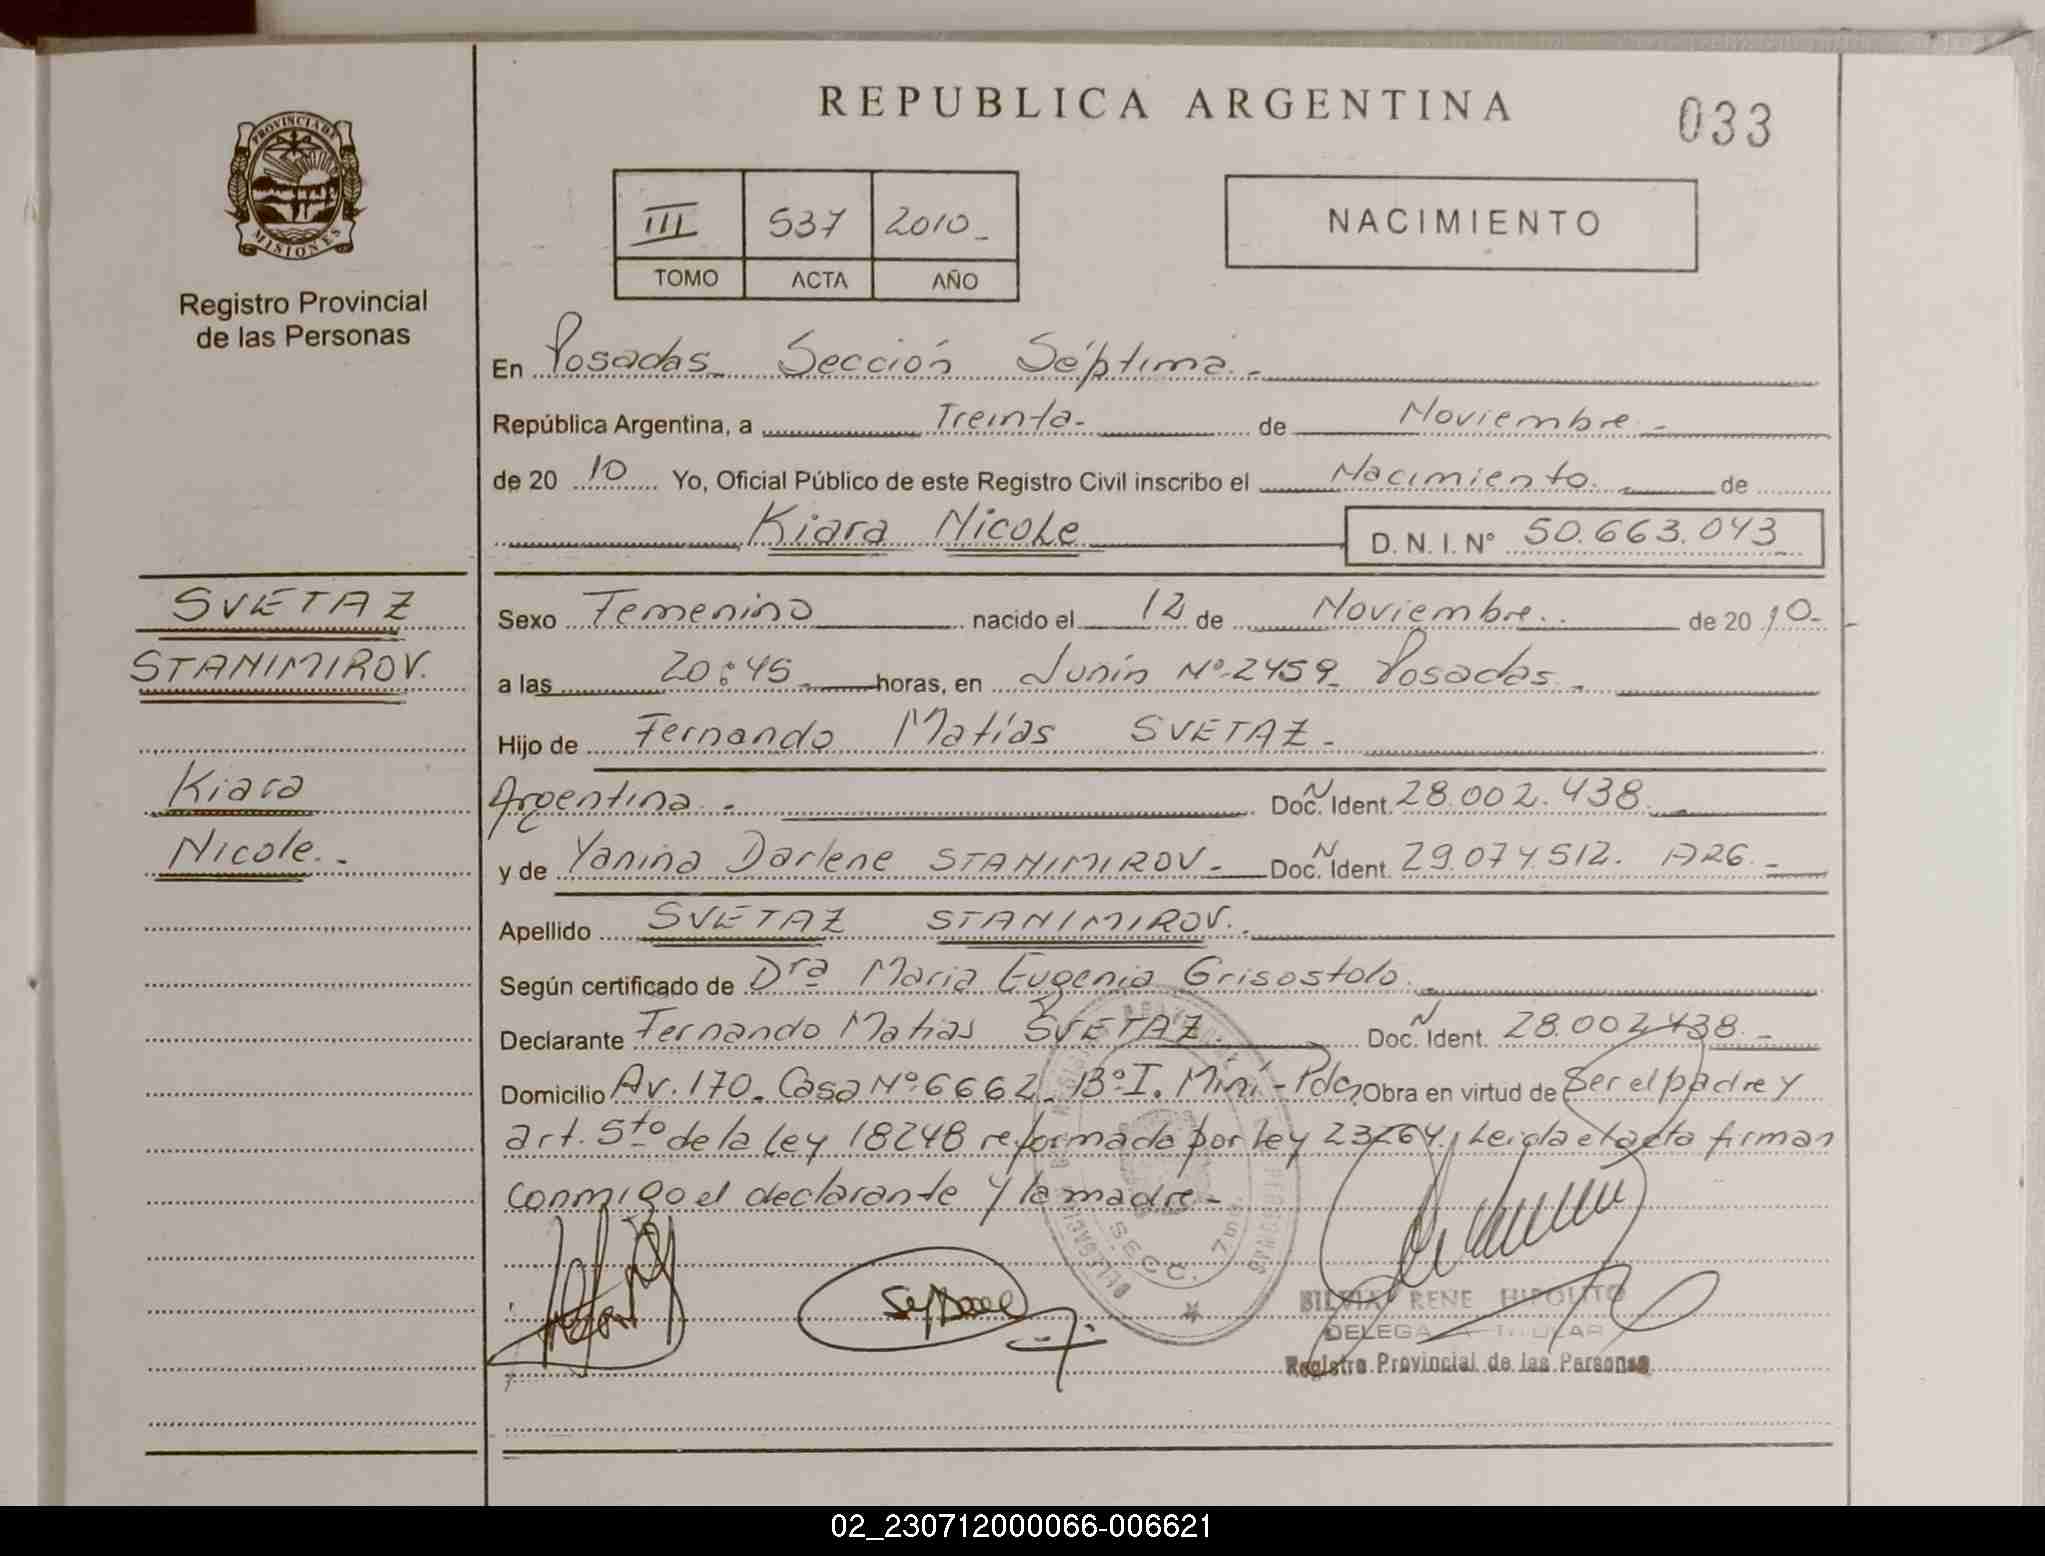 REPUBLICA ARGENTINA
033
PROVINCIA DE
MISIONES
Registro Provincial
de las Personas
III 537 2010
TOMO ACTA AÑO
NACIMIENTO
En Posadas Sección Séptima.-
República Argentina, a Treinta- de Noviembre-
de 20 10 Yo, Oficial Público de este Registro Civil inscribo el Nacimiento de
Kiara Nicole D. N. I. N° 50.663.043
SVETAZ
STANIMIROV.
Kiara
Nicole.-
Sexo Femenino nacido el 12 de Noviembre de 2010-
a las 20:45 horas, en Junín Nº 2459 Posadas.-
Hijo de Fernando Matías SVETAZ-
Argentina.- Doc. N Ident. 28.002.438.
y de Yanina Darlene STANIMIROV- Doc. N Ident. 29.074.512. ARG.-
Apellido SVETAZ STANIMIROV.
Según certificado de Dra Maria Eugenia Grisostolo.-
Declarante Fernando Matias SVETAZ Doc. N Ident. 28.002.438.-
Domicilio Av. 170. Casa Nº 6662. Bº I. Miní-Pdas, Obra en virtud de Ser el padre y
art. 5to de la Ley 18248 reformada por Ley 23264. Leida el acta firman
conmigo el declarante y la madre-
SECC. 7ma.
SILVIA RENE HIPOLITO
DELEGADA TITULAR
Registro Provincial de las Personas
02_230712000066-006621